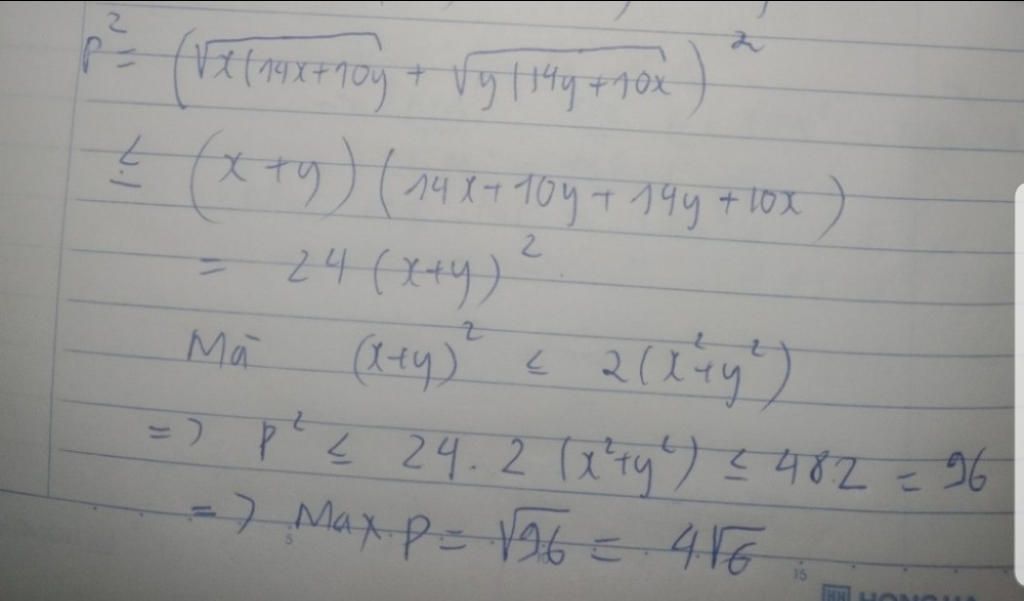 P² = (√x(14x+10y + √y(14y+10x)²
≤ (x+y)(14x+10y+14y+10x)
= 24(x+y)²
Mà (x+y)² ≤ 2(x²+y²)
=> P² ≤ 24.2(x²+y²) ≤ 48.2 = 96
=> Max P = √96 = 4√6
5 15